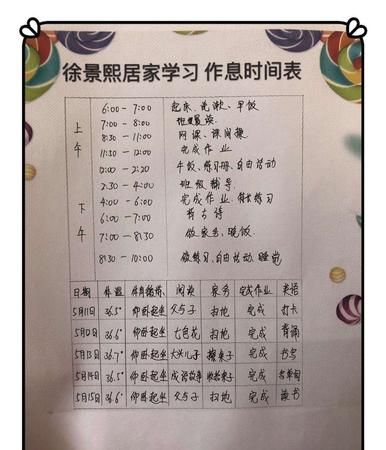 徐景熙居家学习 作息时间表
上午
6:00 - 7:00 起床、洗漱、早饭
7:00 - 8:00 读
8:30 - 11:00 网课、课间操
11:30 - 12:00 完成作业
12:00 - 2:20 午饭、练习册、自由活动
下午
2:30 - 4:00 班级辅导
4:00 - 6:00 完成作业、特长练习
6:00 - 7:00 背古诗
7:00 - 8:30 做家务、晚饭
8:30 - 10:00 做练习、自由活动、睡觉
日期 体温 体育锻炼 阅读 家务 完成作业 英语
5月11日 36.5° 仰卧起坐 父与子 扫地 完成 打卡
5月12日 36.6° 仰卧起坐 七色花 扫地 完成 背诵
5月13日 36.7° 仰卧起坐 大头儿子 擦桌子 完成 书写
5月14日 36.5° 仰卧起坐 成语故事 收拾桌子 完成 写单词
5月15日 36.6° 仰卧起坐 父与子 扫地 完成 读书